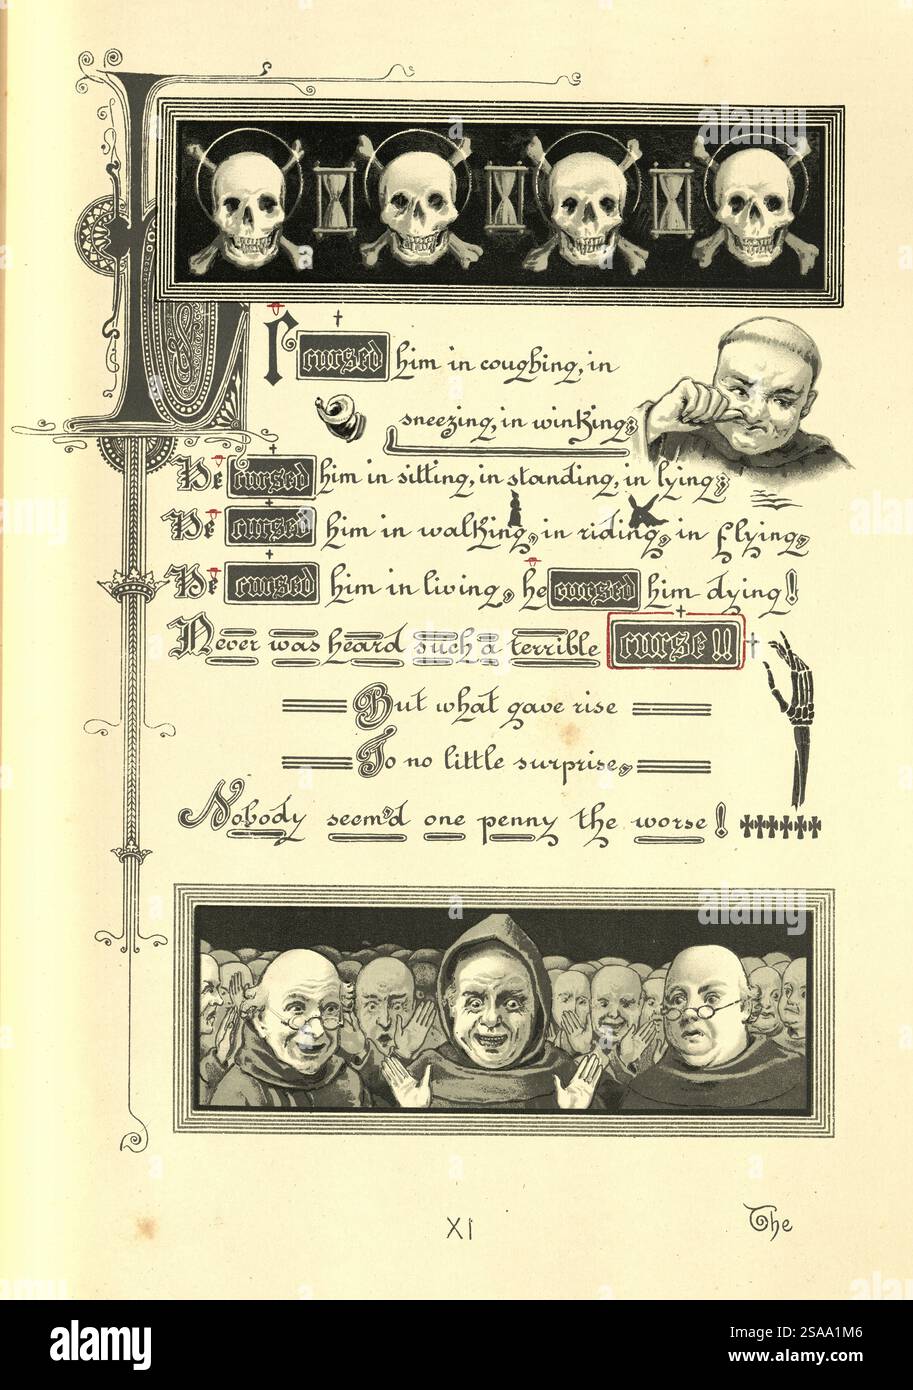 cursed him in coughing, in
sneezing, in winking;
He cursed him in sitting, in standing, in lying;
He cursed him in walking, in riding, in flying,
He cursed him in living, he cursed him dying!
Never was heard such a terrible curse!!
But what gave rise
To no little surprise,
Nobody seem'd one penny the worse!
XI
The
alamy
Image ID: 2SAA1M6
www.alamy.com